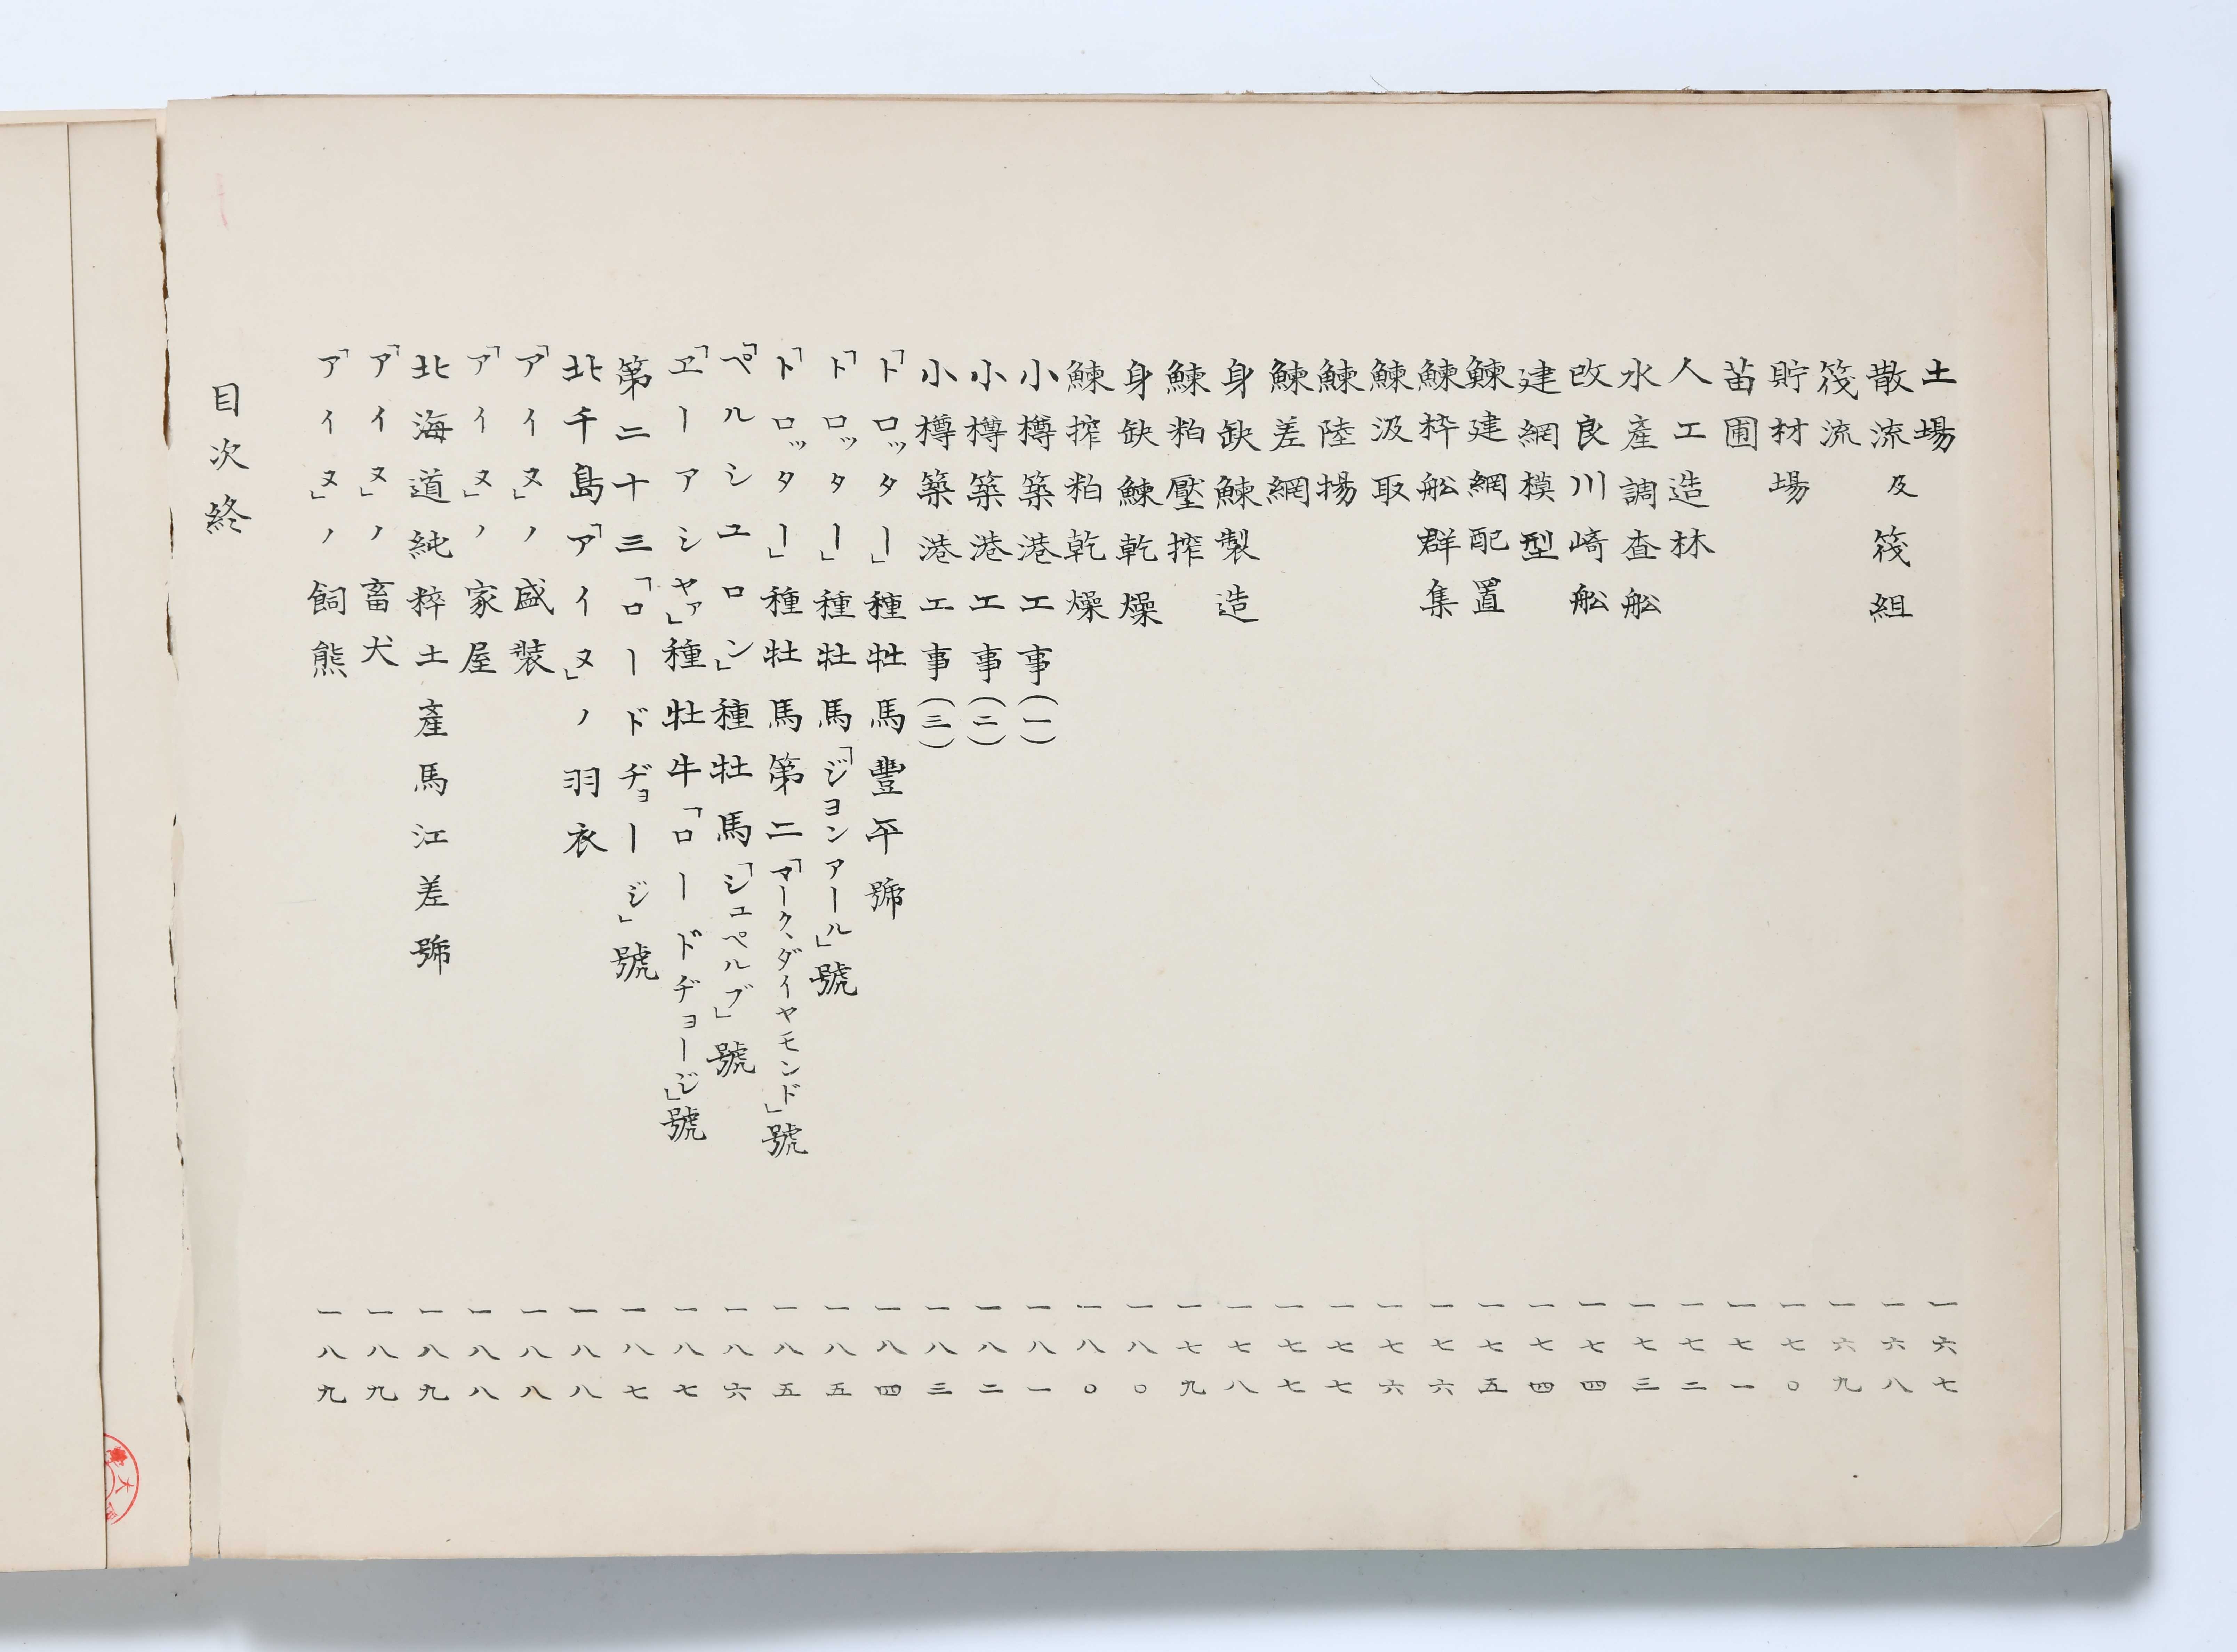 土場 一六七
散流及筏組 一六八
筏流 一六九
貯材場 一七〇
苗圃 一七一
人工造林 一七二
水產調査舩 一七三
改良川崎舩 一七四
建網模型 一七四
鰊建網配置 一七五
鰊枠舩群集 一七六
鰊汲取 一七六
鰊陸揚 一七七
鰊差網 一七七
身缺鰊製造 一七八
鰊粕壓搾 一七九
身缺鰊乾燥 一八〇
鰊搾粕乾燥 一八〇
小樽築港工事(一) 一八一
小樽築港工事(二) 一八二
小樽築港工事(三) 一八三
「トロッター」種牡馬豐平號 一八四
「トロッター」種牡馬「ジヨンアール」號 一八五
「トロッター」種牡馬第二「マーク、ダイヤモンド」號 一八五
「ペルシユロン」種牡馬「シュペルブ」號 一八六
「ヱーアシヤァ」種牡牛「ロードヂョージ」號 一八七
第二十三「ロードヂョージ」號 一八七
北千島「アイヌ」ノ羽衣 一八八
「アイヌ」ノ盛裝 一八八
「アイヌ」ノ家屋 一八八
北海道純粹土產馬江差號 一八九
「アイヌ」ノ畜犬 一八九
「アイヌ」ノ飼熊 一八九
目次終